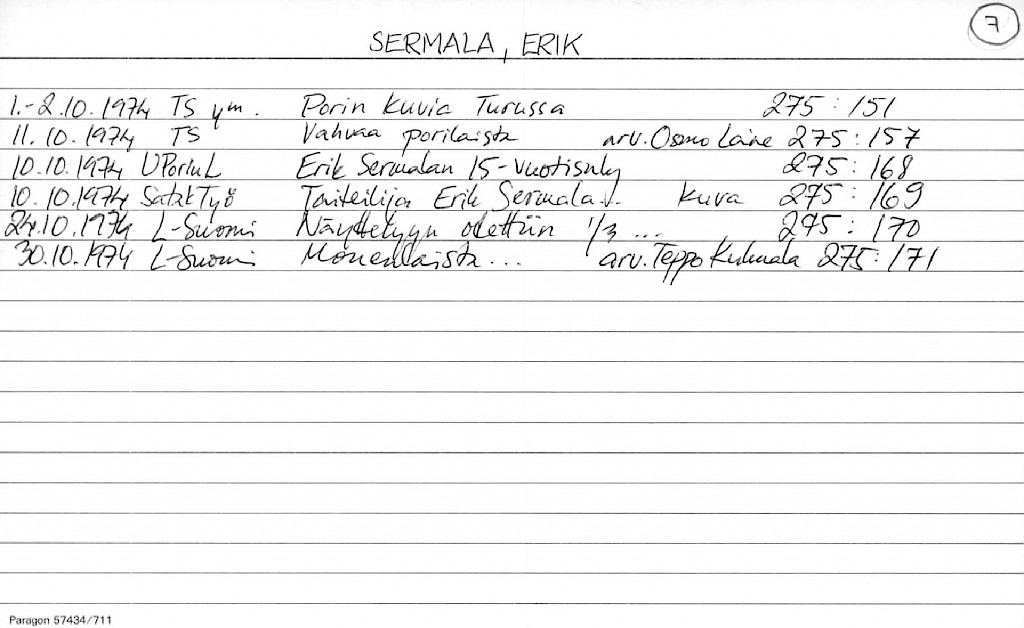 7
SERMALA, ERIK
1.-2.10.1974 TS ym. Porin kuvia Turussa 275:151
11.10.1974 TS Vahvaa porilaista arv. Osmo Laine 275:157
10.10.1974 UPorinL Erik Sermalan 15-vuotisnäy 275:168
10.10.1974 SatakTyö Taiteilija Erik Sermala kuva 275:169
24.10.1974 L-Suomi Näyttelyyn otettiin 1/3 ... 275:170
30.10.1974 L-Suomi Monenlaista... arv. Teppo Kulmala 275:171
Paragon 57434/711